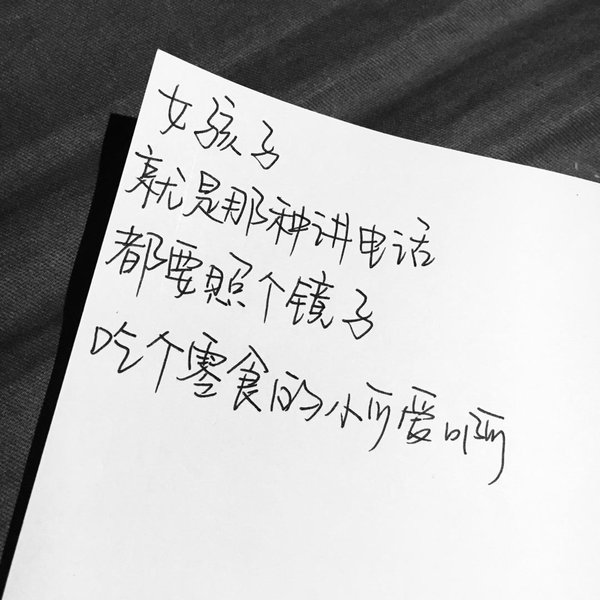 女孩子
就是那种讲电话
都要照个镜子
吃个零食的小可爱啊